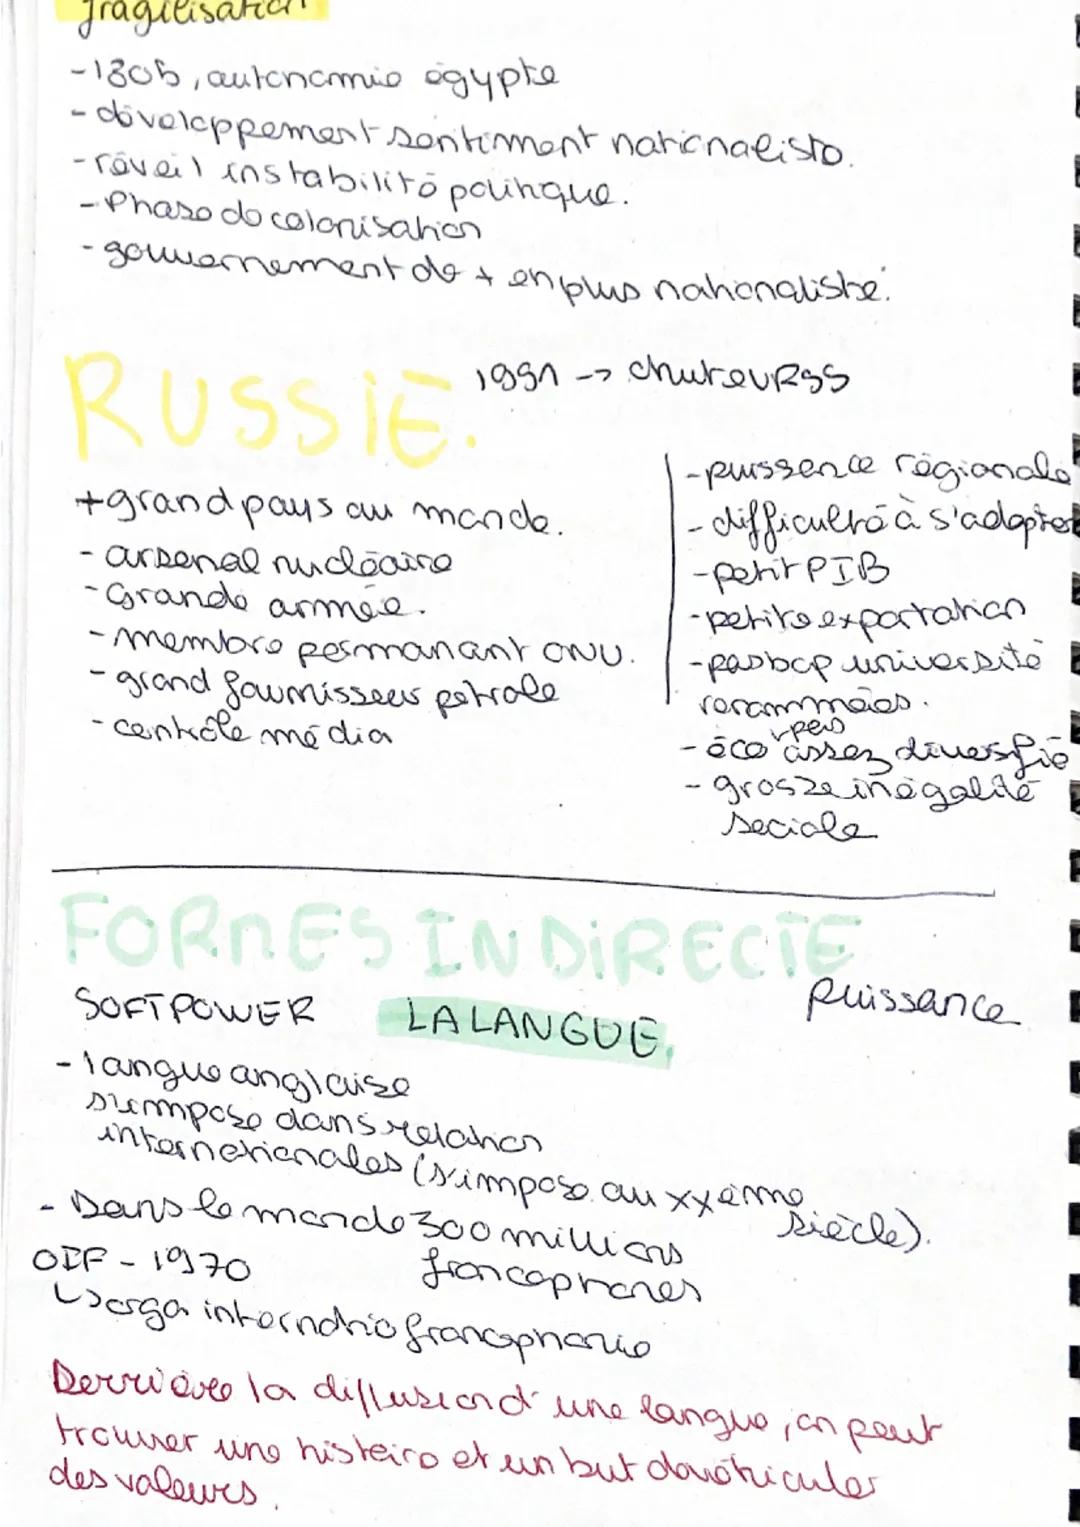 fragilisation
-1805, autonomie égypte
- développement sentiment nationaliste.
- réveil instabilité politique.
- Phase de colonisation
- gouvernement de + en plus nationaliste.
RUSSIE.
1991 -> chute URSS
+ grand pays au monde.
- arsenal nucléaire
- Grande armée.
- membre permanant ONU.
- grand fournisseur petrole
- contrôle média
- puissence régionale
- difficulté à s'adapter
- petit PIB
- petite exportation
- pas bcp université
renommées.
- éco peu assez diversfié
- grosse inégalité
sociale
FORMES INDIRECTE
puissance
SOFT POWER
LA LANGUE.
- langue anglaise
s'impose dans relation
internationales (s'impose au xxème
siècle).
- Dans le monde 300 millions
francophones
OIF - 1970
↳ orga internatio francophonie
Derrière la diffusion d'une langue, on peut
trouver une histoire et un but de véhiculer
des valeurs.